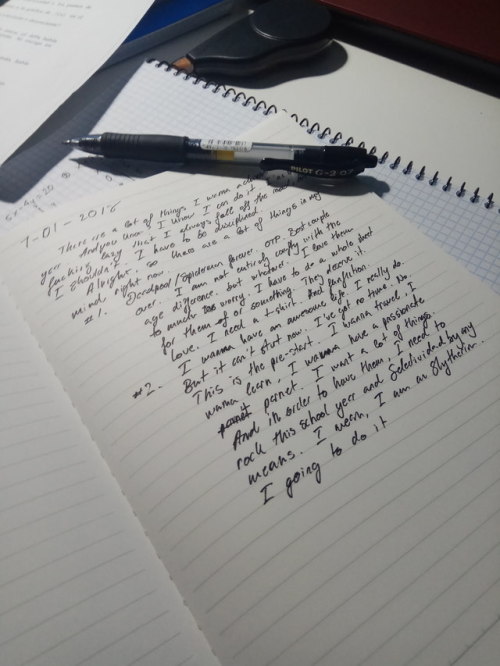 5x-4y=20
PILOT G-2 07
7-01-2018
There are a lot of things I wanna
year. And you over I know I can do it
fucking lazy that I always fall off the
I shouldn't. I have to be disciplined.
Alright, so there are a lot of things in my
mind right now.
#1. Deadpool/Spiderman forever. OTP. Best couple
ever. I am not entirely comfy with the
age difference, but whatever. I love them
to much to worry. I have to do a whole
for them or something. They deserve it.
love. I need a t-shirt. And fanfiction
#2. I wanna have an awesome life. I really do.
But it can't start now. I've got no time. No.
This is the pre-start. I wanna travel, I
wanna learn, I wanna have a passionate
I want a lot of things
And in order to have them, I need to
rock this school year and Selectividad by my
means. I mean, I am an Slytherin.
I going to do it